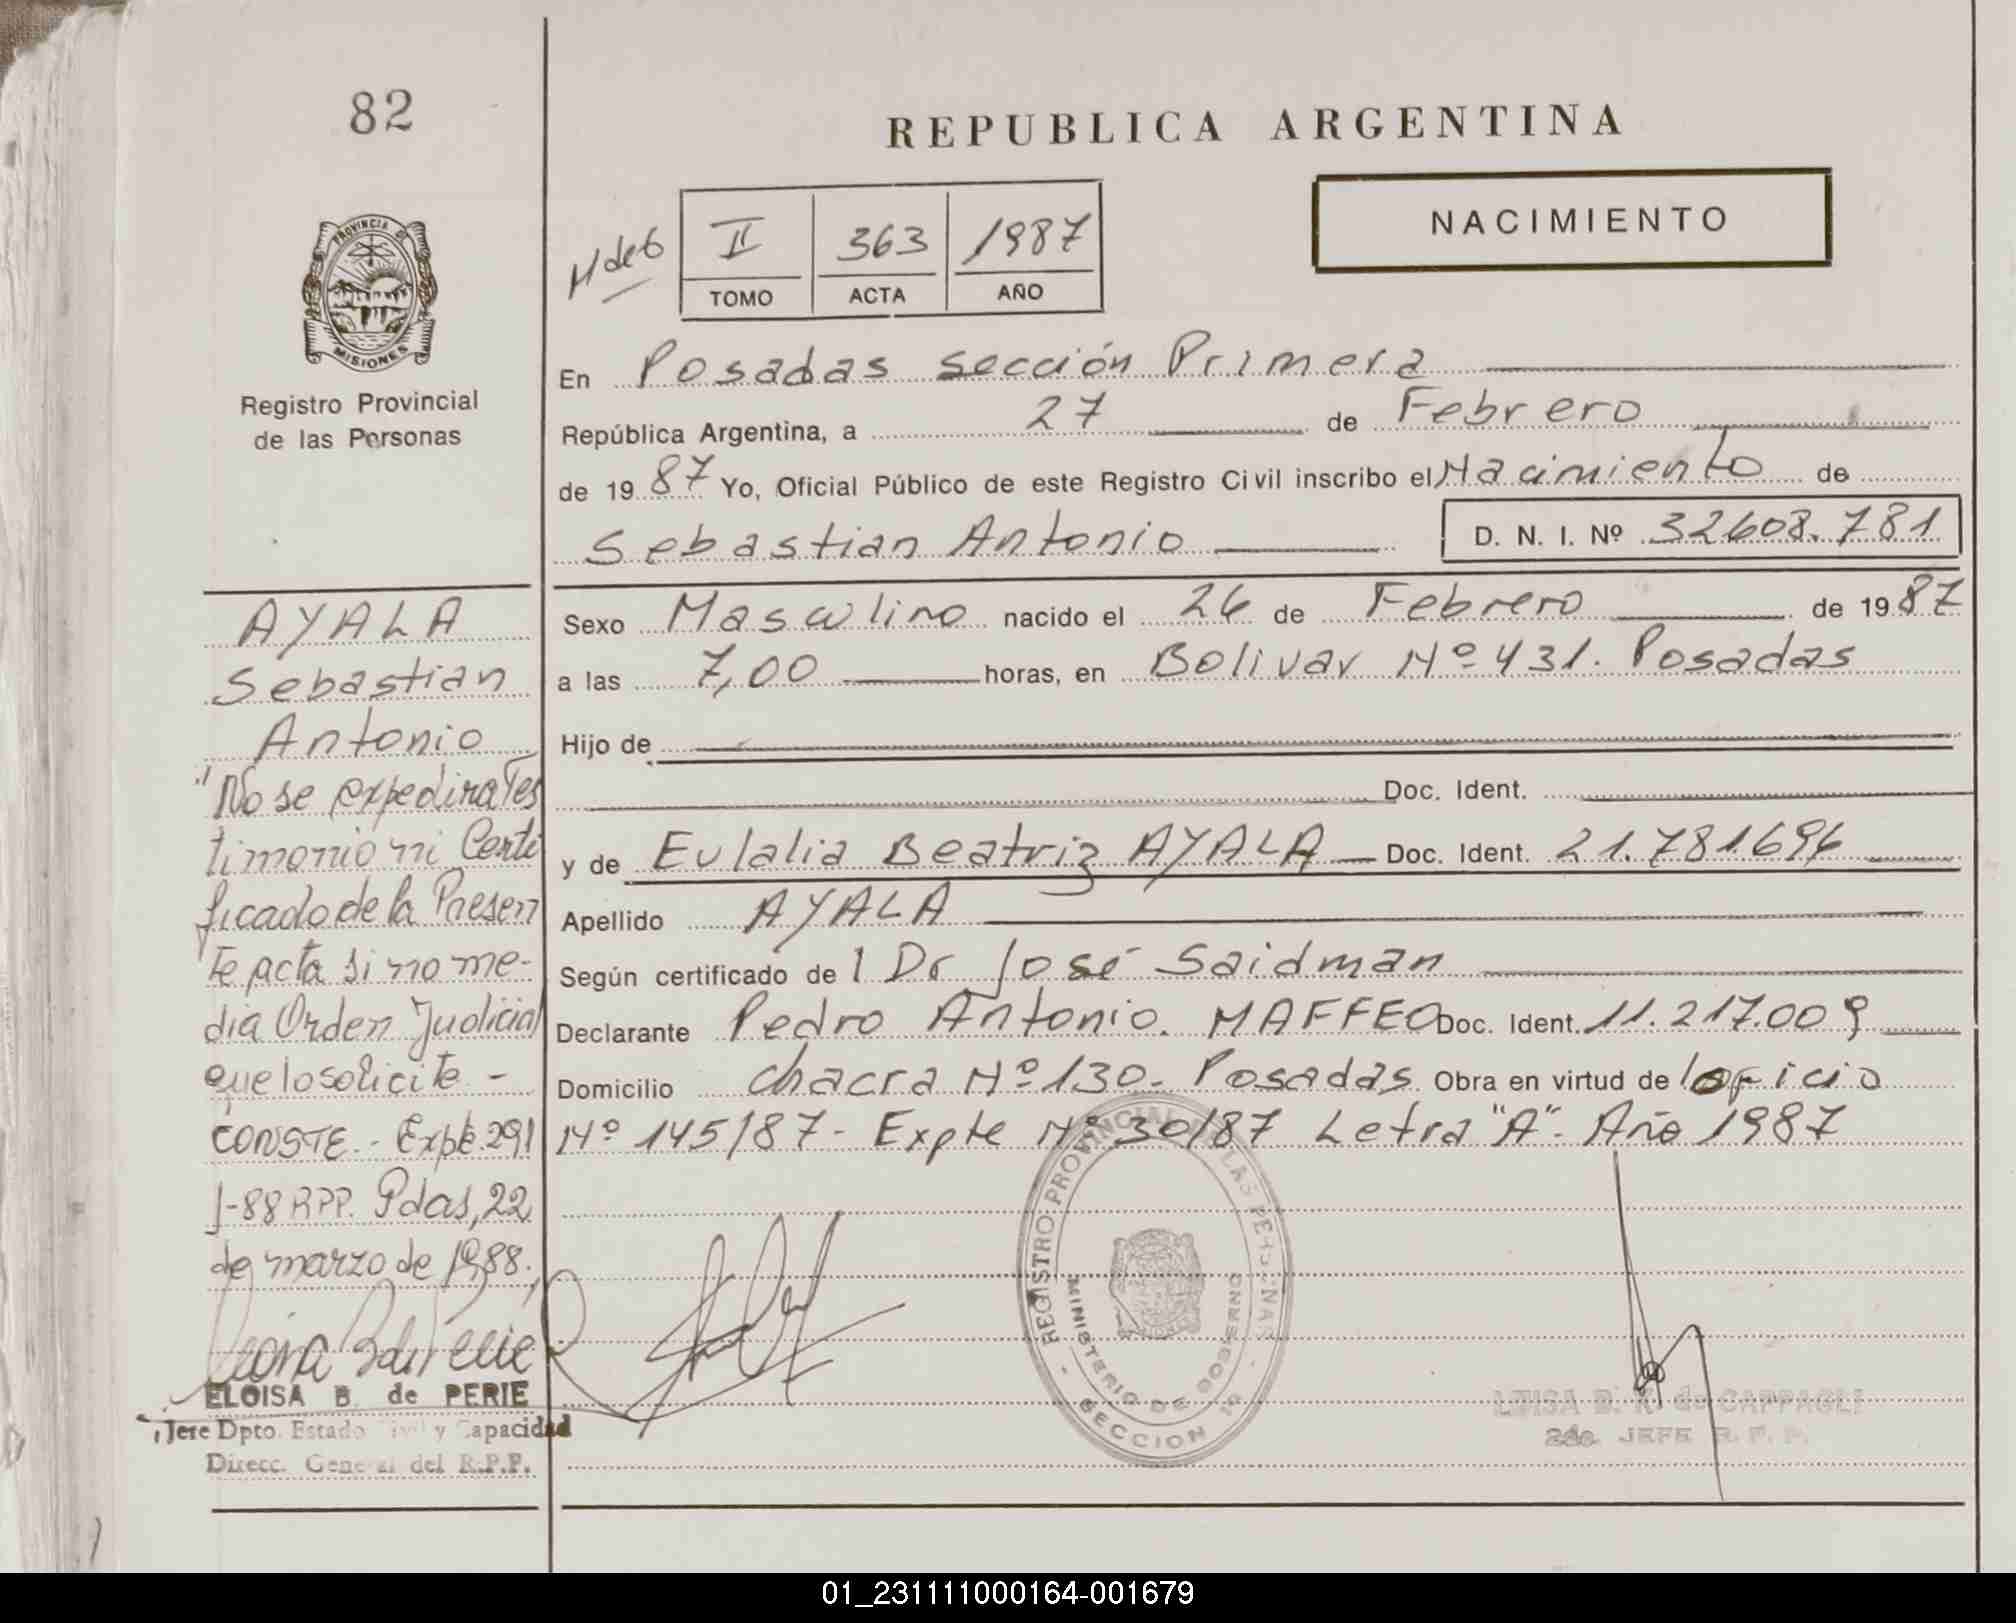 82
REPUBLICA ARGENTINA
NACIMIENTO
H de 6
II 363 1987
TOMO ACTA AÑO
PROVINCIA DE
MISIONES
Registro Provincial
de las Personas
En Posadas sección Primera
República Argentina, a 27 de Febrero
de 1987 Yo, Oficial Público de este Registro Civil inscribo el Nacimiento de
Sebastian Antonio D. N. I. Nº 32608.781
Sexo Masculino nacido el 26 de Febrero de 1987
a las 7,00 horas, en Bolivar Nº 431. Posadas
Hijo de
Doc. Ident.
y de Eulalia Beatriz AYALA Doc. Ident. 21.781.696
Apellido AYALA
Según certificado de l Dr José Saidman
Declarante Pedro Antonio. MAFFEO Doc. Ident. 11.217.009
Domicilio Chacra Nº 130- Posadas Obra en virtud de l oficio
Nº 145/87- Expte Nº 30/87 Letra "A"- Año 1987
AYALA
Sebastian
Antonio
"No se expedira Tes
timonio ni Certi
ficado de la Presen
te acta si no me-
dia Orden Judicial
que lo solicite -
CONSTE.- Expte. 291
J-88 RPP. Pdas, 22
de marzo de 1988.
ELOISA B. de PERIE
Jefe Dpto. Estado Civil y Capacidad
Direcc. General del R.P.P.
REGISTRO PROVINCIAL DE LAS PERSONAS
MINISTERIO DE GOBIERNO
SECCION 1ª
LUISA B. K. de CAPPAGLI
2do. JEFE R. P. P.
01_231111000164-001679